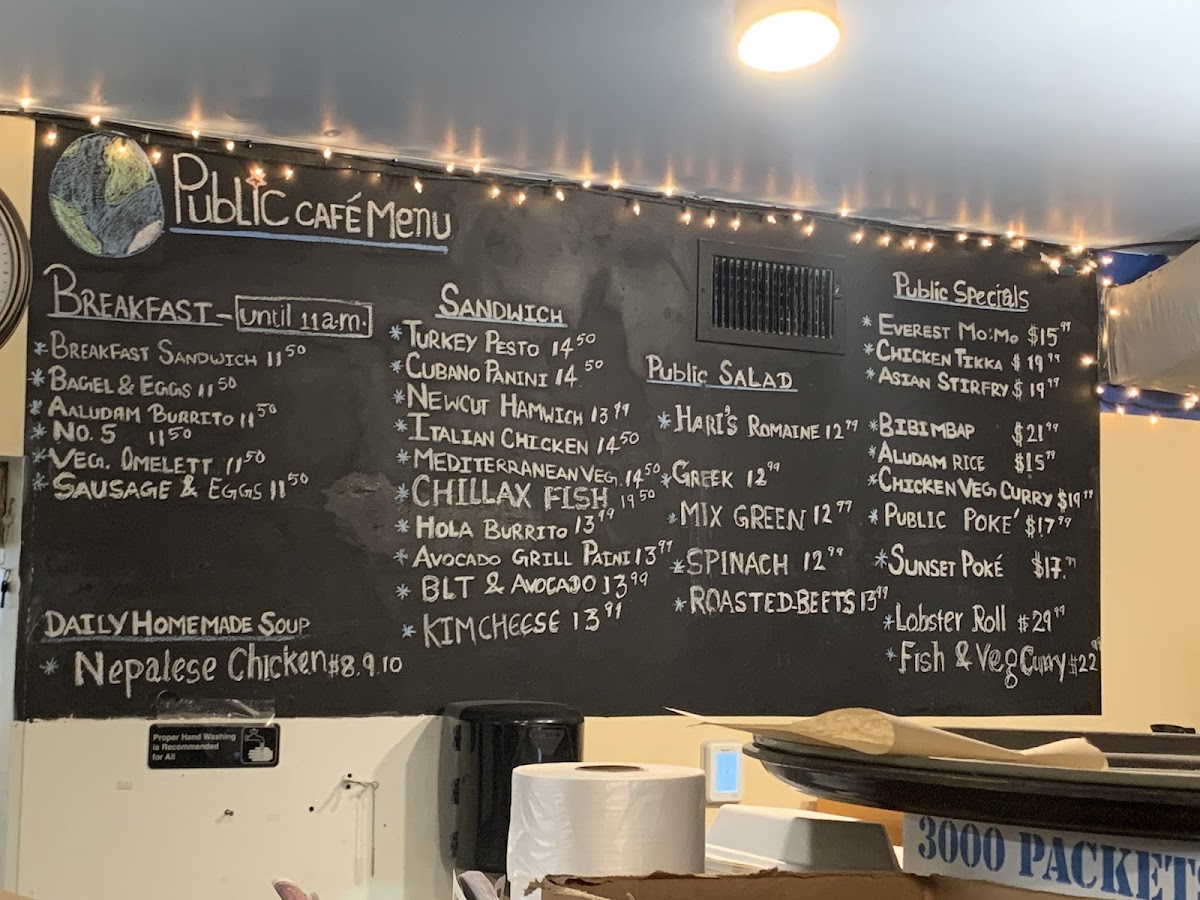 Public CAFÉ Menu
BREAKFAST - until 11 a.m.
*BREAKFAST SANDWICH 11 50
*BAGEL & EGGS 11 50
*AALUDAM BURRITO 11 50
*NO. 5 11 50
*VEG. OMELETT 11 50
*SAUSAGE & EGGS 11 50
DAILY HOMEMADE SOUP
* Nepalese Chicken $8.9.10
SANDWICH
*TURKEY PESTO 14 50
*CUBANO PANINI 14 50
*NEWCUT HAMWICH 13 99
*ITALIAN CHICKEN 14 50
*MEDITERRANEAN VEG. 14 50
*CHILLAX FISH 19 50
*HOLA BURRITO 13 99
*AVOCADO GRILL PAINI 13 99
* BLT & AVOCADO 13 99
* KIMCHEESE 13 99
Public SALAD
*HARI'S ROMAINE 12 99
*GREEK 12 99
*MIX GREEN 12 99
*SPINACH 12 99
*ROASTED-BEETS 13 99
Public Specials
*EVEREST MO:MO $15 99
*CHICKEN TIKKA $19 99
*ASIAN STIRFRY $19 99
*BIBIMBAP $21 99
*ALUDAM RICE $15 99
*CHICKEN VEG CURRY $19 99
*PUBLIC POKE' $17 99
*SUNSET POKÉ $17. 99
*Lobster Roll $29 99
*Fish & Veg Curry $22 99
Proper Hand Washing
is Recommended
for All
3000 PACKETS